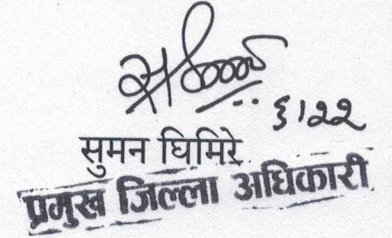 ६।२२
सुमन घिमिरे
प्रमुख जिल्ला अधिकारी